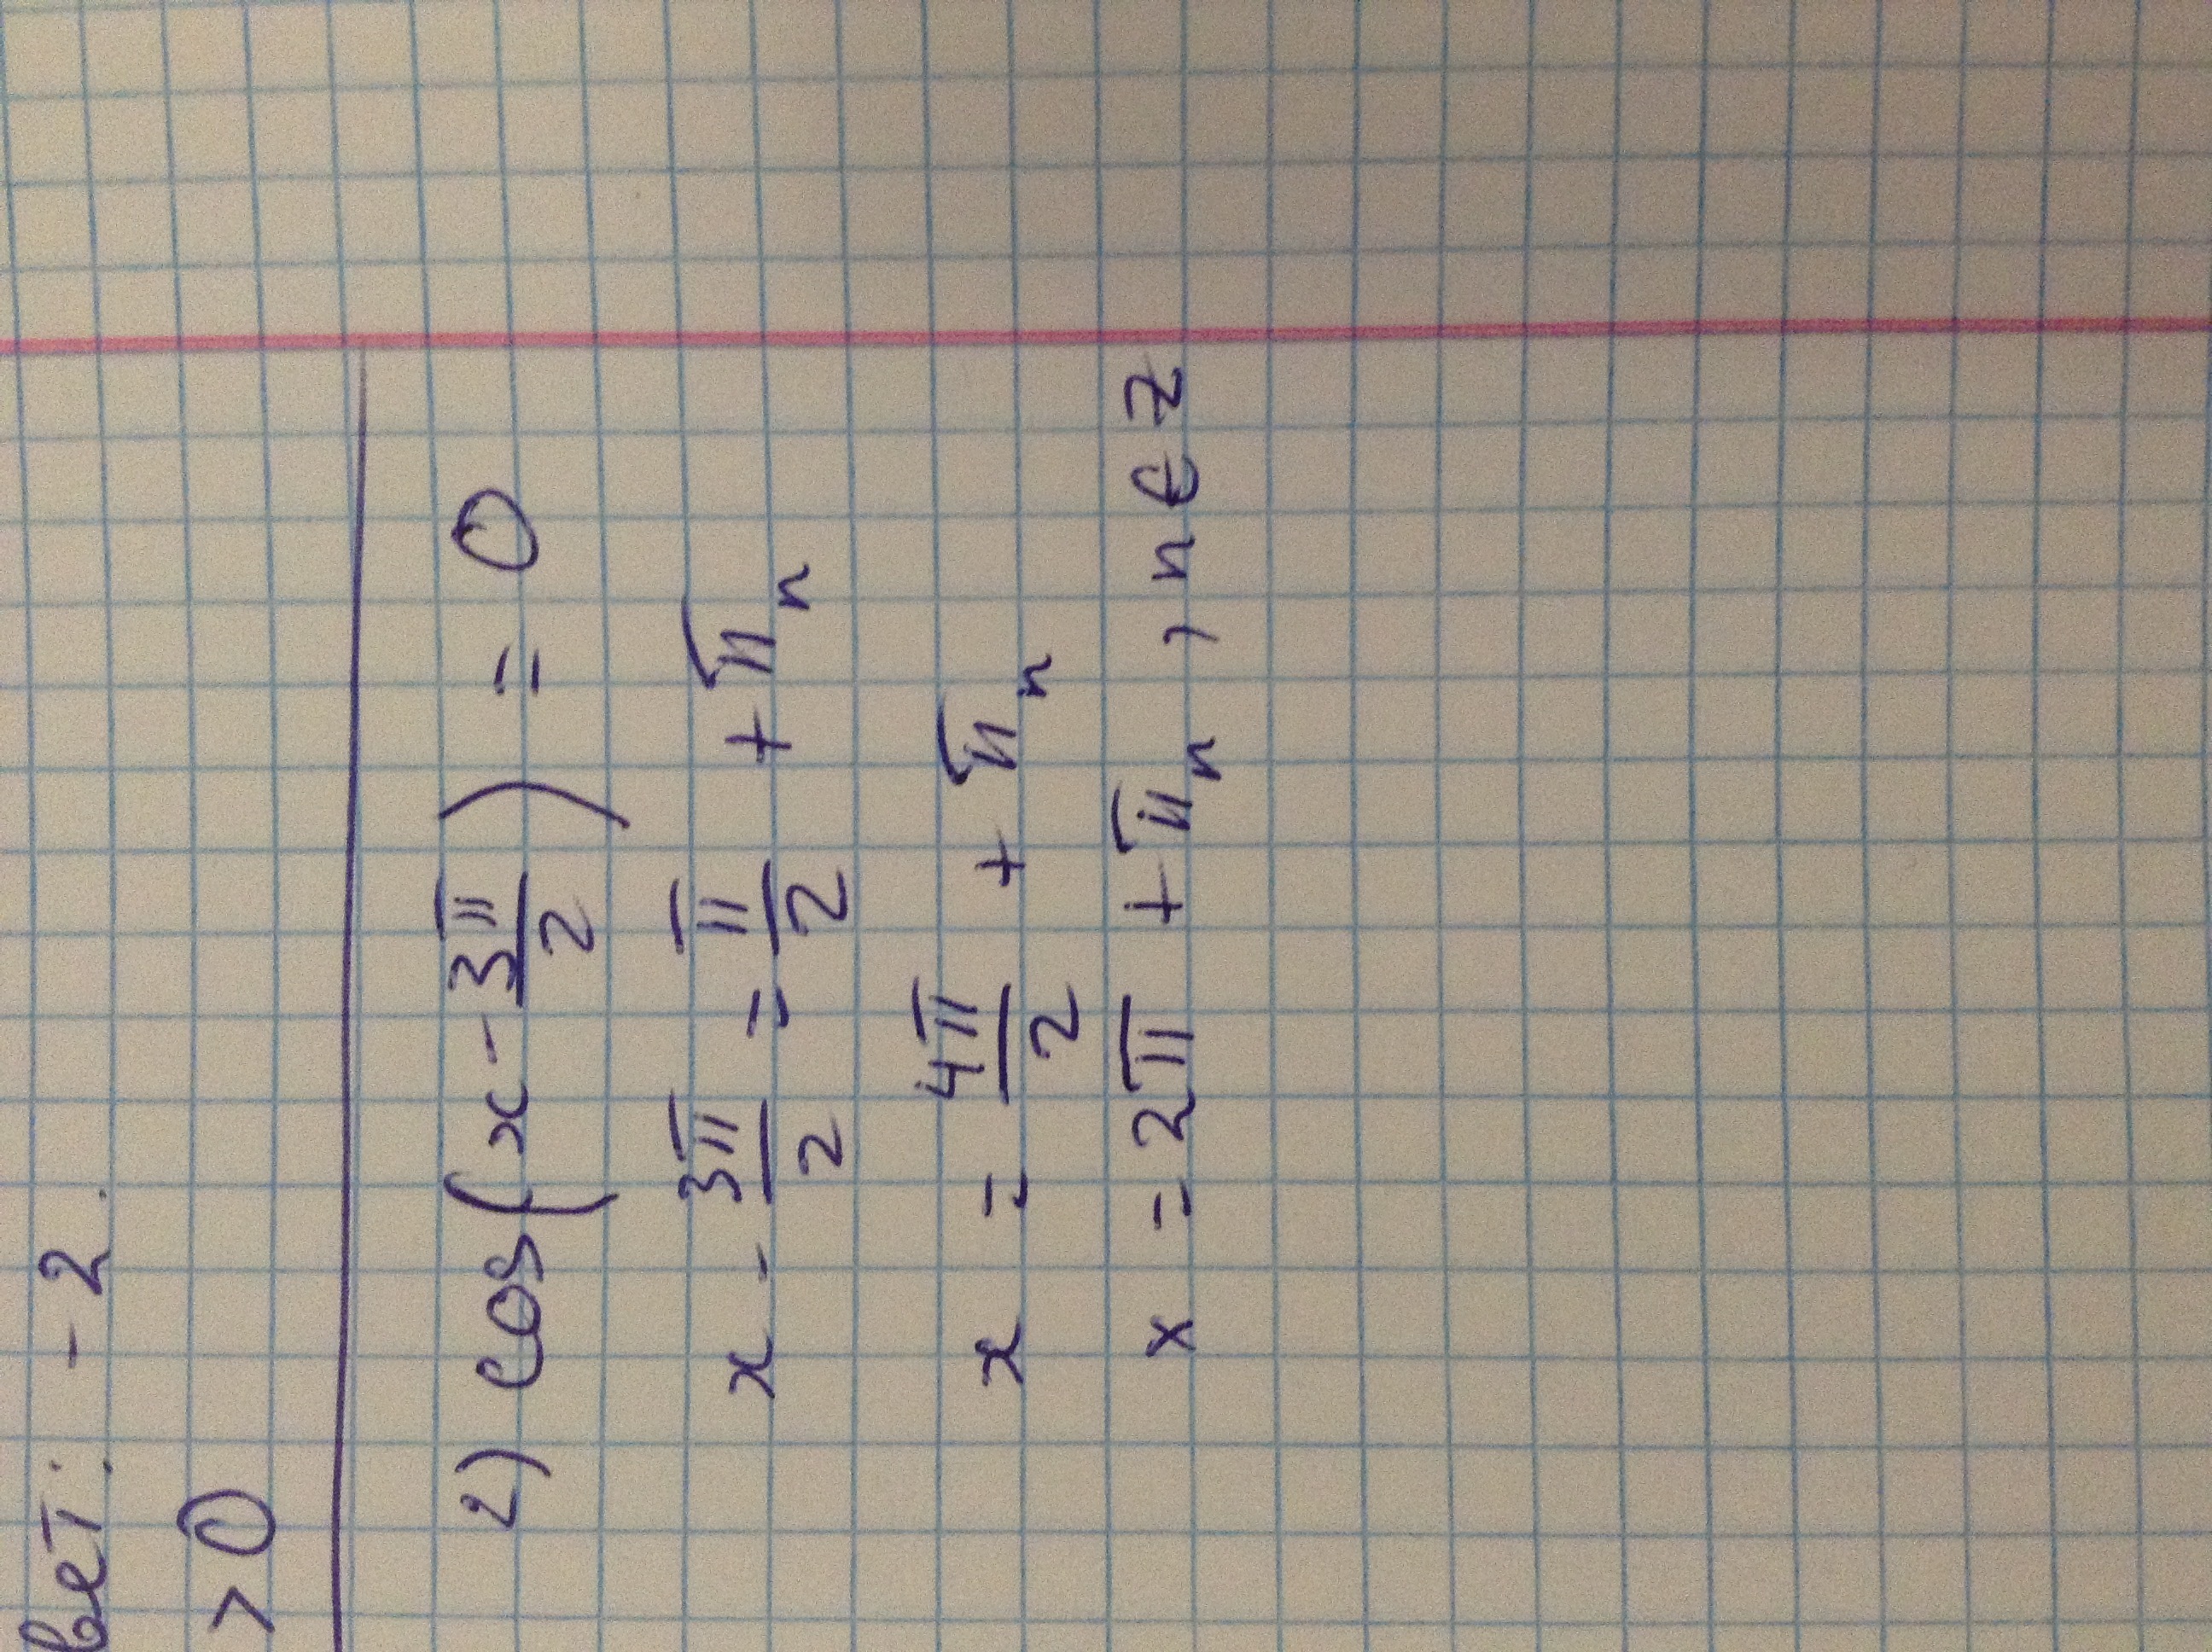 вет: -2.
>0
2) cos(x - 3π/2) = 0
x - 3π/2 = π/2 + πn
x = 4π/2 + πn
x = 2π + πn, n∈Z